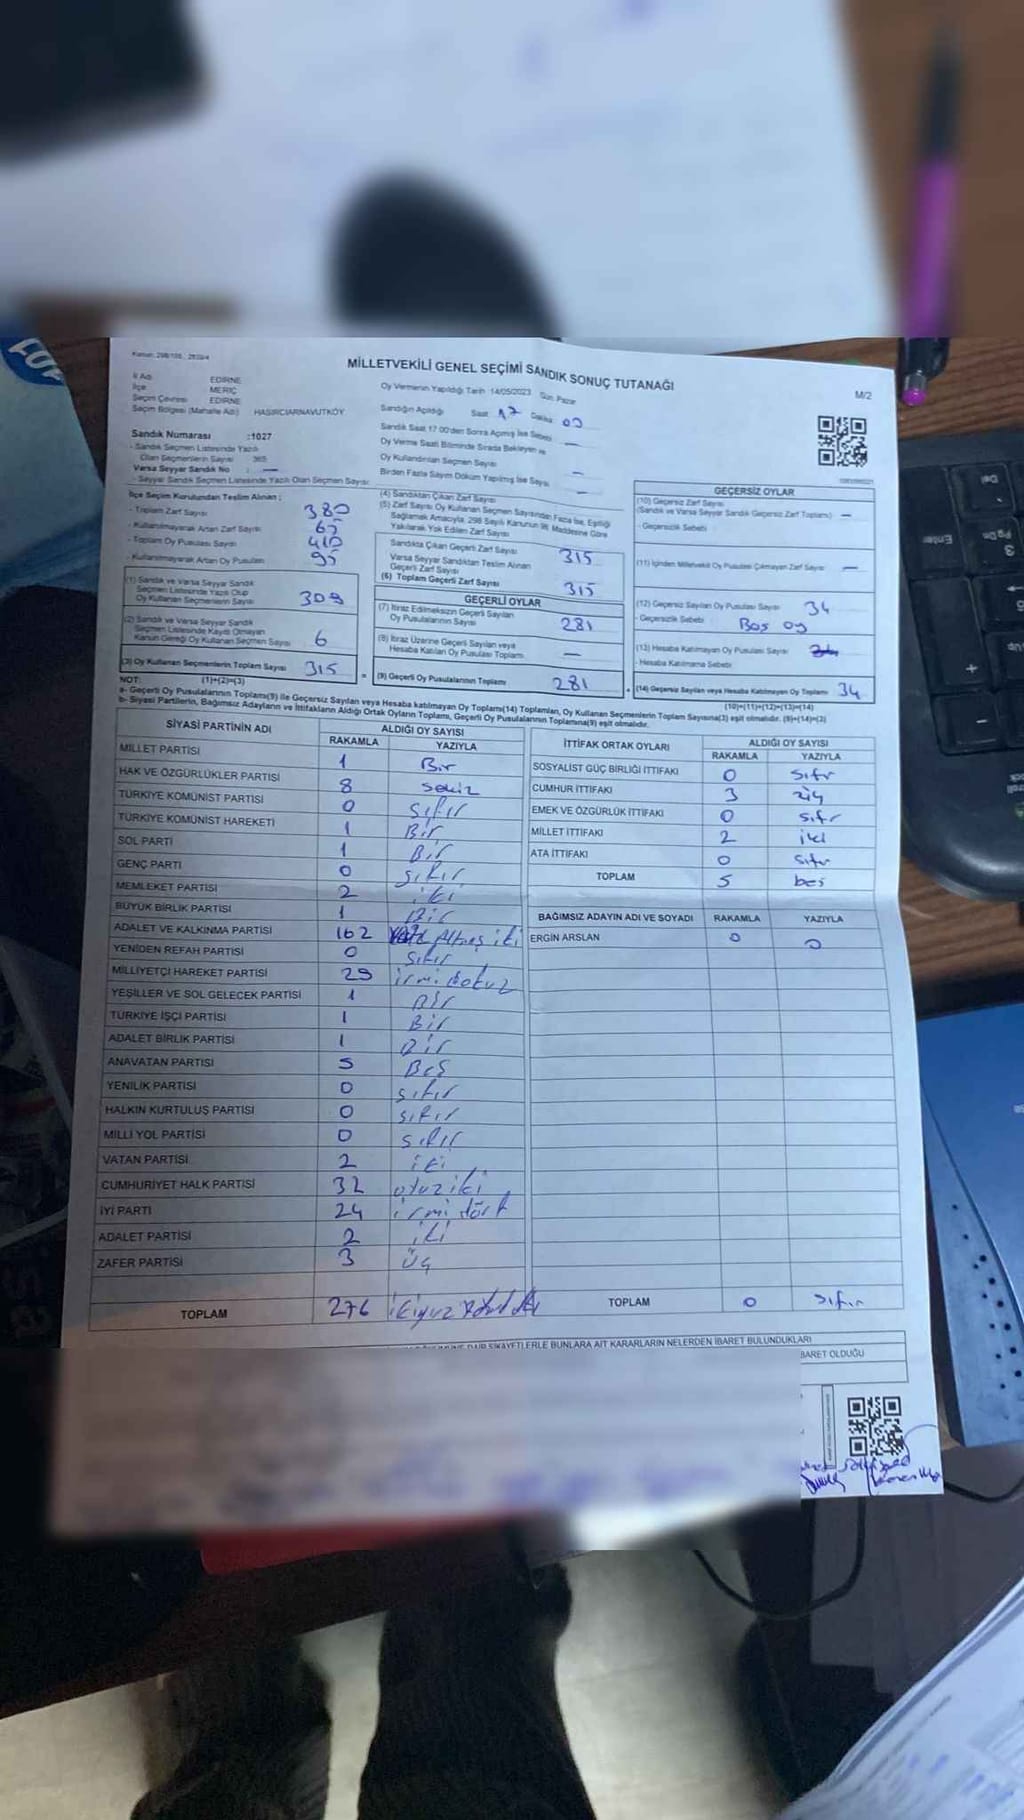 MİLLETVEKİLİ GENEL SEÇİMİ SANDIK SONUÇ TUTANAĞI
M/2
İl Adı EDİRNE
İlçe MERİÇ
Seçim Çevresi EDİRNE
Seçim Bölgesi (Mahalle Adı) HASIRCIARNAVUTKÖY
Sandık Numarası :1027
- Sandık Seçmen Listesinde Yazılı
Olan Seçmenlerin Sayısı 365
Varsa Seyyar Sandık No : —
- Seyyar Sandık Seçmen Listesinde Yazılı Olan Seçmen Sayısı
Oy Vermenin Yapıldığı Tarih 14/05/2023 Gün Pazar
Sandığın Açıldığı Saat 17 Dakika
Sandık Saat 17:00'den Sonra Açılmış İse Sebebi —
Oy Verme Saati Bitiminde Sırada Bekleyen ve
Oy Kullandırılan Seçmen Sayısı —
Birden Fazla Sayım Döküm Yapılmış İse Sayısı —
İlçe Seçim Kurulundan Teslim Alınan ;
- Toplam Zarf Sayısı 380
- Kullanılmayarak Artan Zarf Sayısı 65
- Toplam Oy Pusulası Sayısı 410
- Kullanılmayarak Artan Oy Pusulası 95
(1) Sandık ve Varsa Seyyar Sandık
Seçmen Listesinde Yazılı Olup
Oy Kullanan Seçmenlerin Sayısı 309
(2) Sandık ve Varsa Seyyar Sandık
Seçmen Listesinde Kaydı Olmayan
Kanun Gereği Oy Kullanan Seçmen Sayısı 6
(3) Oy Kullanan Seçmenlerin Toplam Sayısı 315
(4) Sandıktan Çıkan Zarf Sayısı
(5) Zarf Sayısı Oy Kullanan Seçmen Sayısından Fazla İse, Eşitliği
Sağlamak Amacıyla, 298 Sayılı Kanunun 98. Maddesine Göre
Yakılarak Yok Edilen Zarf Sayısı
Sandıkta Çıkan Geçerli Zarf Sayısı 315
Varsa Seyyar Sandıktan Teslim Alınan
Geçerli Zarf Sayısı
(6) Toplam Geçerli Zarf Sayısı 315
GEÇERLİ OYLAR
(7) İtiraz Edilmeksizin Geçerli Sayılan
Oy Pusulalarının Sayısı 281
(8) İtiraz Üzerine Geçerli Sayılan veya
Hesaba Katılan Oy Pusulası Toplamı —
(9) Geçerli Oy Pusulalarının Toplamı 281
GEÇERSİZ OYLAR
(10) Geçersiz Zarf Sayısı
(Sandık ve Varsa Seyyar Sandık Geçersiz Zarf Toplamı) —
- Geçersizlik Sebebi
(11) İçinden Milletvekili Oy Pusulası Çıkmayan Zarf Sayısı —
(12) Geçersiz Sayılan Oy Pusulası Sayısı 34
- Geçersizlik Sebebi Boş oy
(13) Hesaba Katılmayan Oy Pusulası Sayısı
- Hesaba Katılmama Sebebi
(14) Geçersiz Sayılan veya Hesaba Katılmayan Oy Toplamı 34
NOT: (1)+(2)=(3) (10)+(11)+(12)+(13)=(14)
a- Geçerli Oy Pusulalarının Toplamı(9) ile Geçersiz Sayılan veya Hesaba Katılmayan Oy Toplamı(14) Toplamları, Oy Kullanan Seçmenlerin Toplam Sayısına(3) eşit olmalıdır. (9)+(14)=(3)
b- Siyasi Partilerin, Bağımsız Adayların ve İttifakların Aldığı Ortak Oyların Toplamı, Geçerli Oy Pusulalarının Toplamına(9) eşit olmalıdır.
SİYASİ PARTİNİN ADI ALDIĞI OY SAYISI
RAKAMLA YAZIYLA
MİLLET PARTİSİ 1 Bir
HAK VE ÖZGÜRLÜKLER PARTİSİ 8 sekiz
TÜRKİYE KOMÜNİST PARTİSİ 0 sıfır
TÜRKİYE KOMÜNİST HAREKETİ 1 Bir
SOL PARTİ 1 Bir
GENÇ PARTİ 0 sıfır
MEMLEKET PARTİSİ 2 iki
BÜYÜK BİRLİK PARTİSİ 1 Bir
ADALET VE KALKINMA PARTİSİ 162 iki
YENİDEN REFAH PARTİSİ 0 sıfır
MİLLİYETÇİ HAREKET PARTİSİ 29 irmi dokuz
YEŞİLLER VE SOL GELECEK PARTİSİ 1 Bir
TÜRKİYE İŞÇİ PARTİSİ 1 Bir
ADALET BİRLİK PARTİSİ 1 Bir
ANAVATAN PARTİSİ 5 Beş
YENİLİK PARTİSİ 0 sıfır
HALKIN KURTULUŞ PARTİSİ 0 sıfır
MİLLİ YOL PARTİSİ 0 sıfır
VATAN PARTİSİ 2 iki
CUMHURİYET HALK PARTİSİ 32 otuz iki
İYİ PARTİ 24 irmi dört
ADALET PARTİSİ 2 iki
ZAFER PARTİSİ 3 üç
TOPLAM 276
İTTİFAK ORTAK OYLARI ALDIĞI OY SAYISI
RAKAMLA YAZIYLA
SOSYALİST GÜÇ BİRLİĞİ İTTİFAKI 0 sıfır
CUMHUR İTTİFAKI 3 üç
EMEK VE ÖZGÜRLÜK İTTİFAKI 0 sıfır
MİLLET İTTİFAKI 2 iki
ATA İTTİFAKI 0 sıfır
TOPLAM 5 beş
BAĞIMSIZ ADAYIN ADI VE SOYADI RAKAMLA YAZIYLA
ERGİN ARSLAN 0 0
TOPLAM 0 sıfır
ŞİKAYETLERLE BUNLARA AİT KARARLARIN NELERDEN İBARET BULUNDUKLARI
İBARET OLDUĞU
Del
Enter
3
Pg Dn